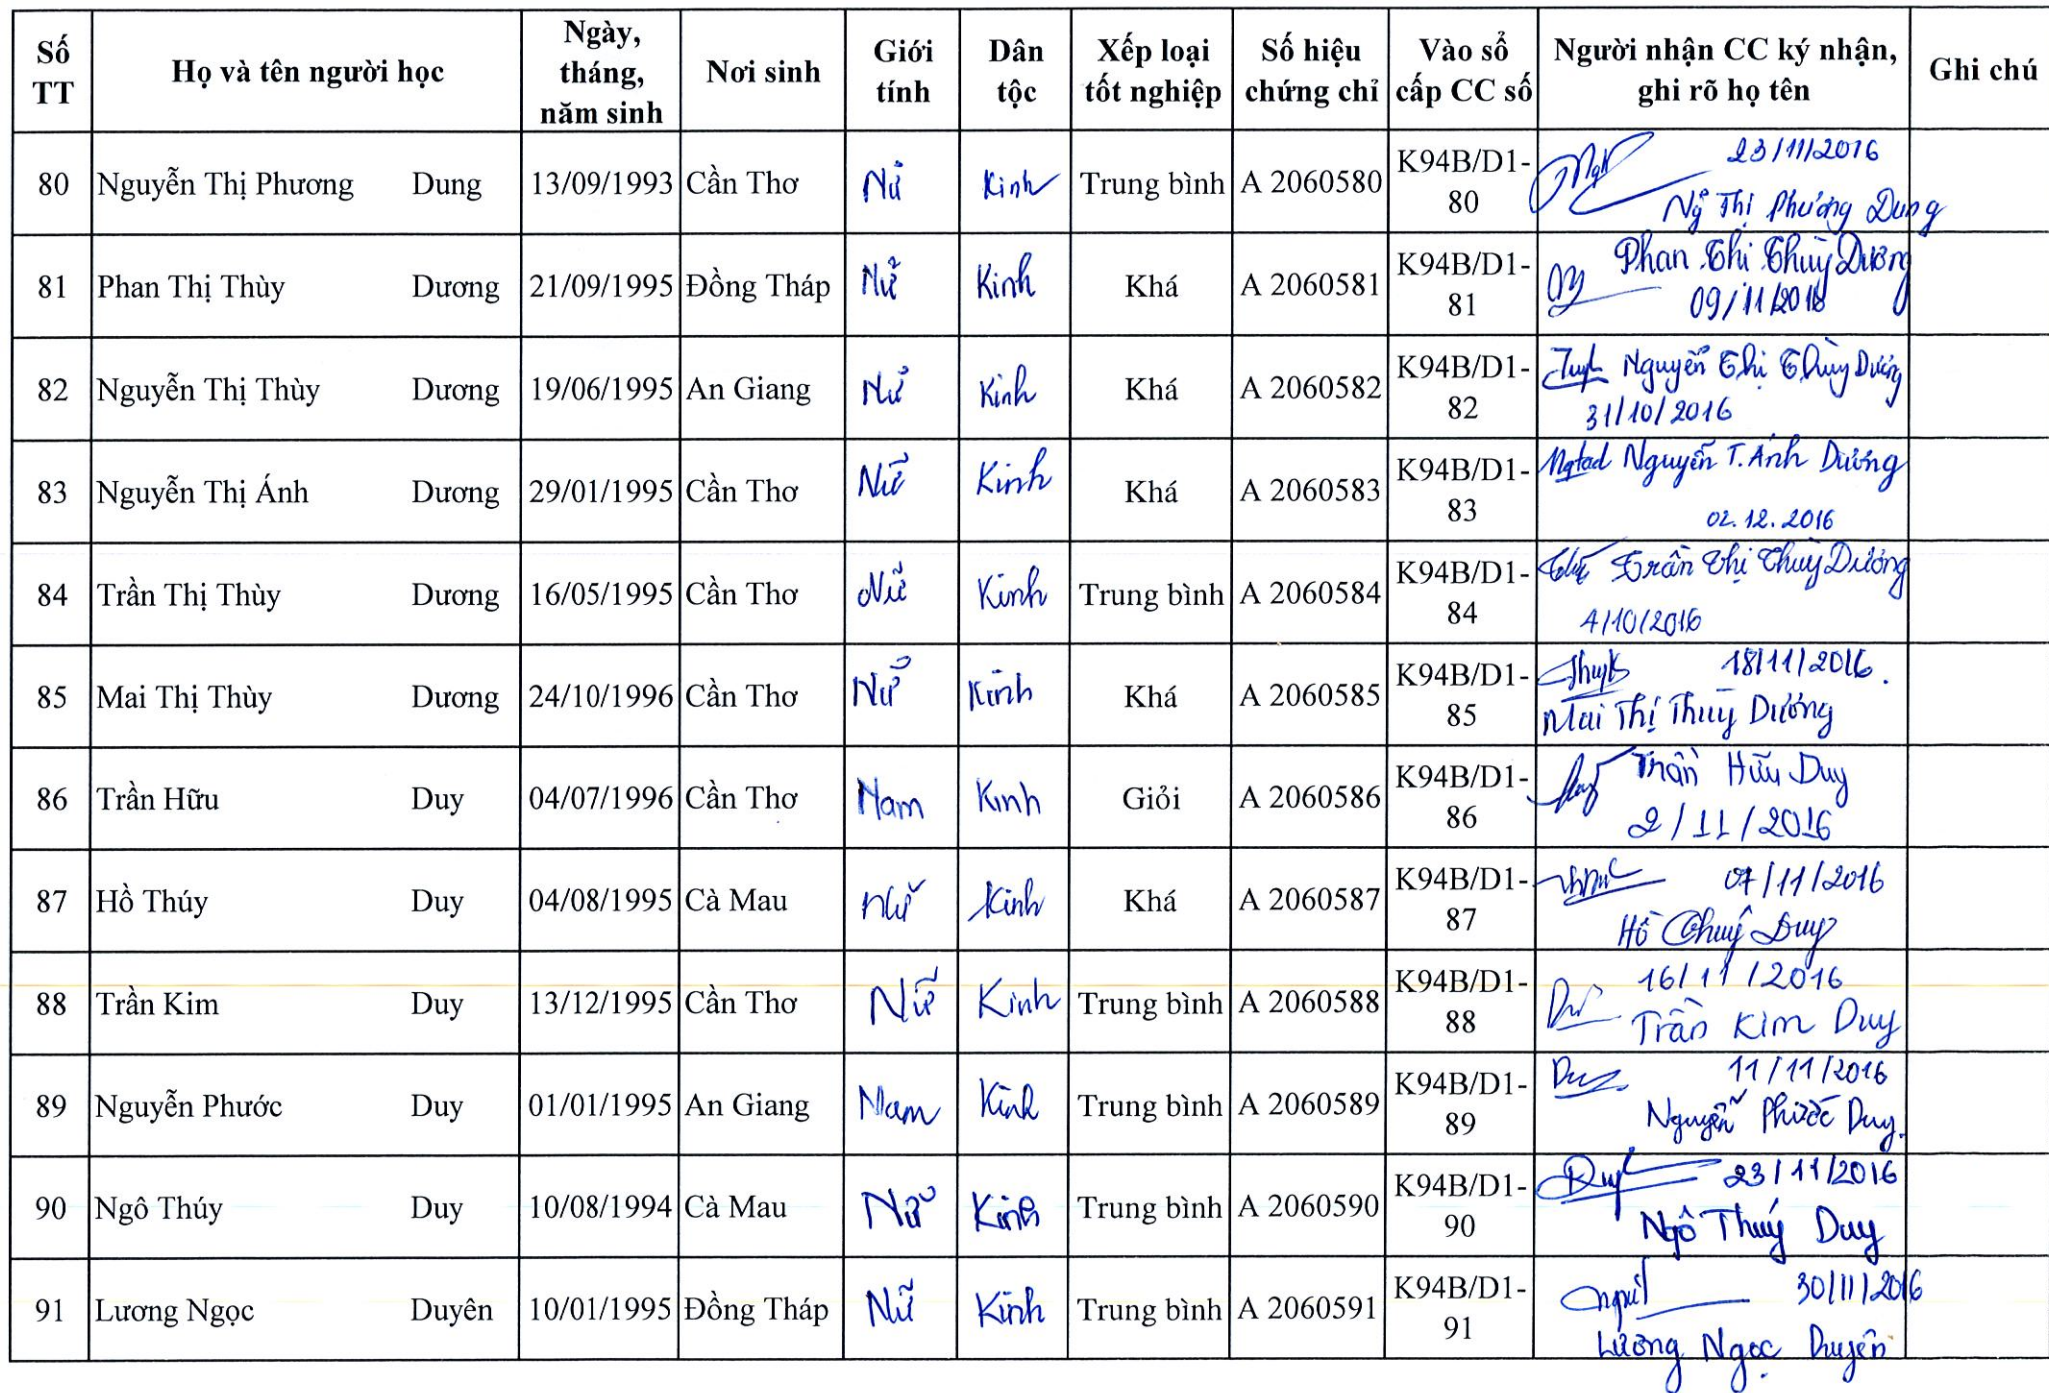 Số TT Họ và tên người học Ngày, tháng, năm sinh Nơi sinh Giới tính Dân tộc Xếp loại tốt nghiệp Số hiệu chứng chỉ Vào sổ cấp CC số Người nhận CC ký nhận, ghi rõ họ tên Ghi chú
80 Nguyễn Thị Phương Dung 13/09/1993 Cần Thơ Nữ Kinh Trung bình A 2060580 K94B/D1-80 23/11/2016
Ng̃ Thị Phương Dung
81 Phan Thị Thùy Dương 21/09/1995 Đồng Tháp Nữ Kinh Khá A 2060581 K94B/D1-81 Phan Thị Thùy Dương
09/11/2016
82 Nguyễn Thị Thùy Dương 19/06/1995 An Giang Nữ Kinh Khá A 2060582 K94B/D1-82 Nguyễn Thị Thùy Dương
31/10/2016
83 Nguyễn Thị Ánh Dương 29/01/1995 Cần Thơ Nữ Kinh Khá A 2060583 K94B/D1-83 Nguyễn T. Ánh Dương
02.12.2016
84 Trần Thị Thùy Dương 16/05/1995 Cần Thơ Nữ Kinh Trung bình A 2060584 K94B/D1-84 Trần Thị Thùy Dương
4/10/2016
85 Mai Thị Thùy Dương 24/10/1996 Cần Thơ Nữ Kinh Khá A 2060585 K94B/D1-85 18/11/2016.
Mai Thị Thùy Dương
86 Trần Hữu Duy 04/07/1996 Cần Thơ Nam Kinh Giỏi A 2060586 K94B/D1-86 Trần Hữu Duy
2/11/2016
87 Hồ Thúy Duy 04/08/1995 Cà Mau Nữ Kinh Khá A 2060587 K94B/D1-87 07/11/2016
Hồ Thuý Duy
88 Trần Kim Duy 13/12/1995 Cần Thơ Nữ Kinh Trung bình A 2060588 K94B/D1-88 16/11/2016
Trần Kim Duy
89 Nguyễn Phước Duy 01/01/1995 An Giang Nam Kinh Trung bình A 2060589 K94B/D1-89 Duy 11/11/2016
Nguyễn Phước Duy.
90 Ngô Thúy Duy 10/08/1994 Cà Mau Nữ Kinh Trung bình A 2060590 K94B/D1-90 Duy 23/11/2016
Ngô Thuý Duy
91 Lương Ngọc Duyên 10/01/1995 Đồng Tháp Nữ Kinh Trung bình A 2060591 K94B/D1-91 30/11/2016
Lương Ngọc Duyên